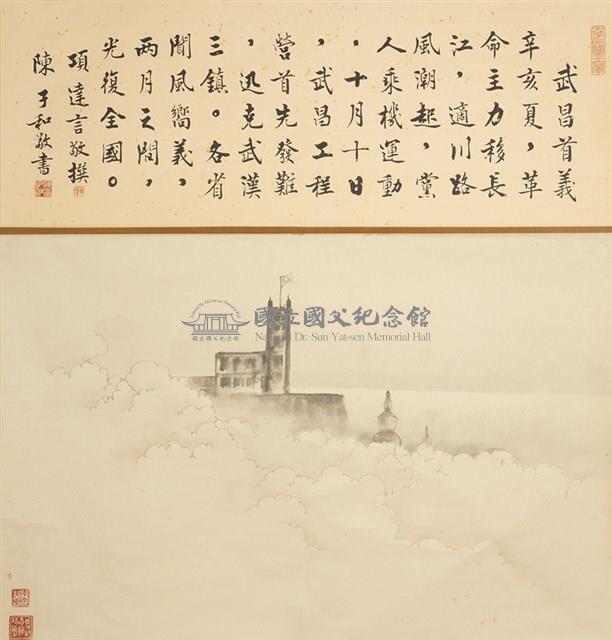 武昌首義
辛亥夏,革
命主力移長
江,適川路
風潮起,黨
人乘機運動
,十月十日
,武昌工程
營首先發難
,迅克武漢
三鎮。各省
聞風嚮義,
兩月之間,
光復全國。
項達言敬撰
陳子和敬書
國立國父紀念館
National Dr. Sun Yat-sen Memorial Hall
國立國父紀念館